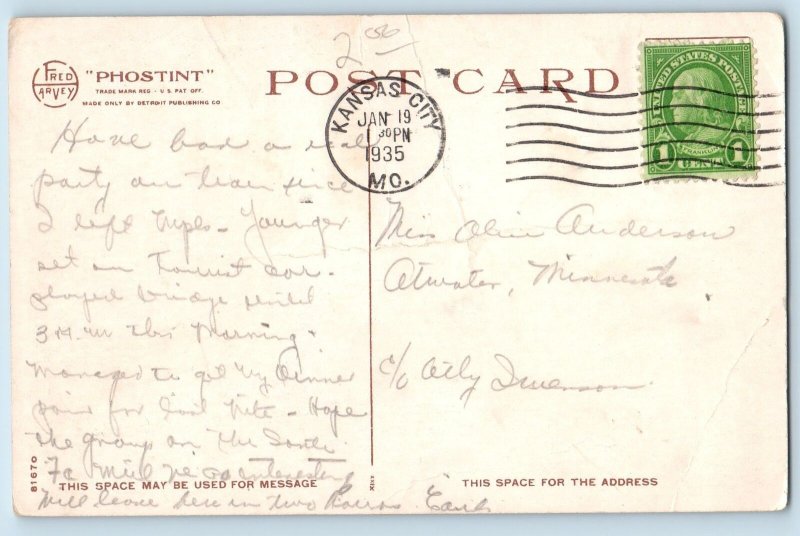 FRED HARVEY
"PHOSTINT"
TRADE MARK REG · U.S. PAT OFF.
MADE ONLY BY DETROIT PUBLISHING CO
POST CARD
KANSAS CITY
JAN 19
1 30 PM
1935
MO.
UNITED STATES POSTAGE
FRANKLIN
1 CENTS 1
Have had a
party on train since
I left Mpls - Younger
set in Tourist car -
played bridge until
3 A.M. this Morning.
Managed to get my dinner
paid for last nite - Hope
the group on the Santa
Fe will be as interesting
Will leave here in two hours Earl
Miss Olive Anderson
Atwater, Minnesota
c/o Swenson
81670
THIS SPACE MAY BE USED FOR MESSAGE
THIS SPACE FOR THE ADDRESS